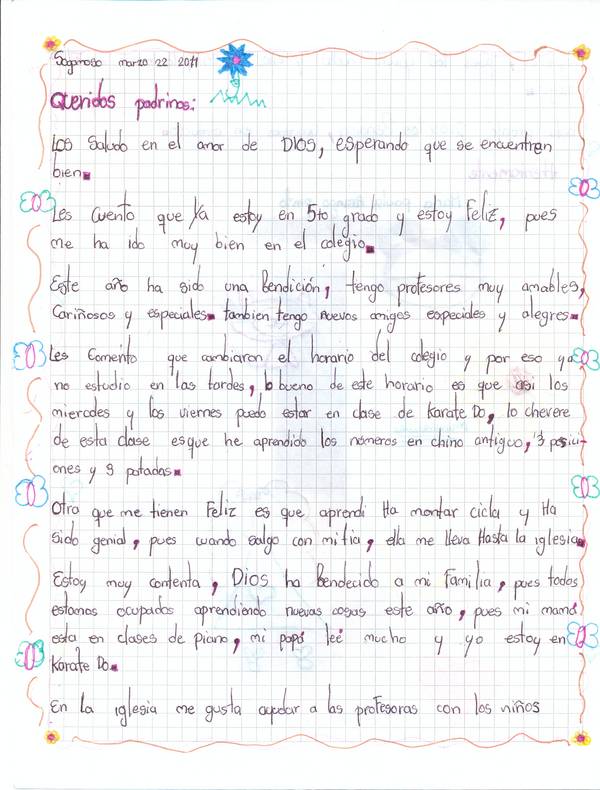 Sogamoso marzo 22 2011
Queridos padrinos:
LOS Saludo en el amor de DIOS, esperando que se encuentran
bien.
Les cuento que ya estoy en 5to grado y estoy Feliz, pues
me ha ido muy bien en el colegio.
Este año ha sido una Bendición, tengo profesores muy amables,
Cariñosos y especiales. tambien tengo nuevos amigos especiales y alegres.
Les Comento que cambiaron el horario del colegio y por eso ya
no estudio en las tardes, lo bueno de este horario es que asi los
miercoles y los viernes puedo estar en clase de Karate Do, lo chevere
de esta clase es que he aprendido los números en chino antiguo, 3 posici-
ones y 9 patadas.
Otra que me tienen Feliz es que aprendi Ha montar cicla y Ha
sido genial, pues cuando salgo con mi tia, ella me lleva Hasta la iglesia.
Estoy muy contenta, Dios ha Bendecido a mi Familia, pues todos
estamos ocupados aprendiendo nuevas cosas este año, pues mi mamá
esta en clases de piano, mi papá leé mucho y yo estoy en
Karate Do.
En la iglesia me gusta ayudar a las profesoras con los niños